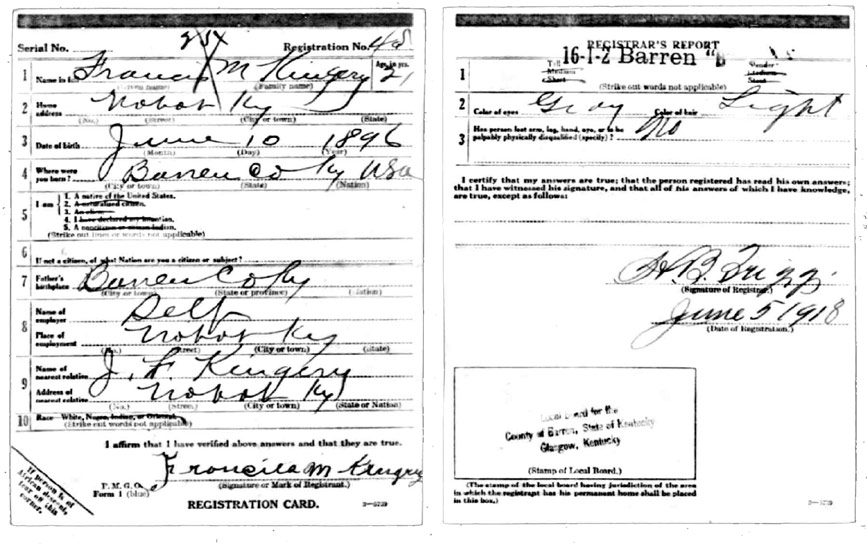 Serial No. 254 Registration No. 48
1 Name in full Francis M Kingery Age in yrs. 21
(Given name) (Family name)
2 Home address Nobob Ky
(No.) (Street) (City or town) (State)
3 Date of birth June 10 1896
(Month) (Day) (Year)
4 Where were you born? Barren Co Ky USA
(City or town) (State) (Nation)
5 I am
1. A native of the United States.
2. A naturalized citizen.
3. An alien.
4. I have declared my intention.
5. A noncitizen or citizen Indian.
(Strike out lines or words not applicable)
6 If not a citizen, of what Nation are you a citizen or subject?
7 Father's birthplace Barren Co Ky
(City or town) (State or province) (Nation)
8 Name of employer Self
Place of employment Nobob Ky
(No.) (Street) (City or town) (State)
9 Name of nearest relation J. F Kingery
Address of nearest relation Nobob Ky
(No.) (Street) (City or town) (State or Nation)
10 Race—White, Negro, Indian, or Oriental.
(Strike out words not applicable)
I affirm that I have verified above answers and that they are true.
P. M. G. O.
Form 1 (blue)
M Kingry
(Signature or Mark of Registrant.)
If person is of African descent, tear off this corner.
REGISTRATION CARD.
REGISTRAR'S REPORT
16-1-2 Barren "B
1 Tall Medium Short Slender Medium Stout
(Strike out words not applicable)
2 Color of eyes Gray Color of hair Light
3 Has person lost arm, leg, hand, eye, or to be palpably physically disqualified (specify)? No
I certify that my answers are true; that the person registered has read his own answers;
that I have witnessed his signature, and that all of his answers of which I have knowledge,
are true, except as follows:
H. B. Trigg
(Signature of Registrar)
June 5 1918
(Date of Registration.)
Local Board for the
County of Barren, State of Kentucky
Glasgow, Kentucky
(Stamp of Local Board.)
(The stamp of the local board having jurisdiction of the area
in which the registrant has his permanent home shall be placed
in this box.)